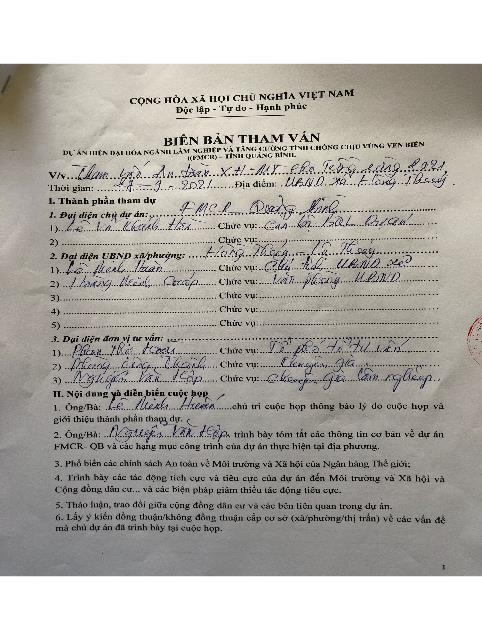 CỘNG HÒA XÃ HỘI CHỦ NGHĨA VIỆT NAM
Độc lập - Tự do - Hạnh phúc
BIÊN BẢN THAM VẤN
DỰ ÁN HIỆN ĐẠI HÓA NGÀNH LÂM NGHIỆP VÀ TĂNG CƯỜNG TÍNH CHỐNG CHỊU VÙNG VEN BIỂN
(FMCR) – TỈNH QUẢNG BÌNH.
V/v: Tham vấn An toàn XH-MT cho Trồng rừng 2021
Thời gian: -9-2021 Địa điểm: UBND xã Hồng Thủy
I. Thành phần tham dự
1. Đại diện chủ dự án: FMCR Quảng Bình
1) Chức vụ: Cán bộ
2) Chức vụ:
2. Đại diện UBND xã/phường: Thủy
1) Lê Chức vụ: UBND xã
2) Hoàng Chức vụ: Văn phòng UBND
3) Chức vụ:
4) Chức vụ:
5) Chức vụ:
3. Đại diện đơn vị tư vấn:
1) Phan Thị Chức vụ: Tổ phó tổ tư vấn
2) Chức vụ: Chuyên gia
3) Nguyễn Văn Hợp Chức vụ: chuyên gia lâm nghiệp
II. Nội dung và diễn biến cuộc họp
1. Ông/Bà: Lê chủ trì cuộc họp thông báo lý do cuộc họp và
giới thiệu thành phần tham dự.
2. Ông/Bà: Nguyễn Văn Hợp trình bày tóm tắt các thông tin cơ bản về dự án
FMCR- QB và các hạng mục công trình của dự án thực hiện tại địa phương.
3. Phổ biến các chính sách An toàn về Môi trường và Xã hội của Ngân hàng Thế giới;
4. Trình bày các tác động tích cực và tiêu cực của dự án đến Môi trường và Xã hội và
Cộng đồng dân cư... và các biện pháp giảm thiểu tác động tiêu cực.
5. Thảo luận, trao đổi giữa cộng đồng dân cư và các bên liên quan trong dự án.
6. Lấy ý kiến đồng thuận/không đồng thuận cấp cơ sở (xã/phường/thị trấn) về các vấn đề
mà chủ dự án đã trình bày tại cuộc họp.
1